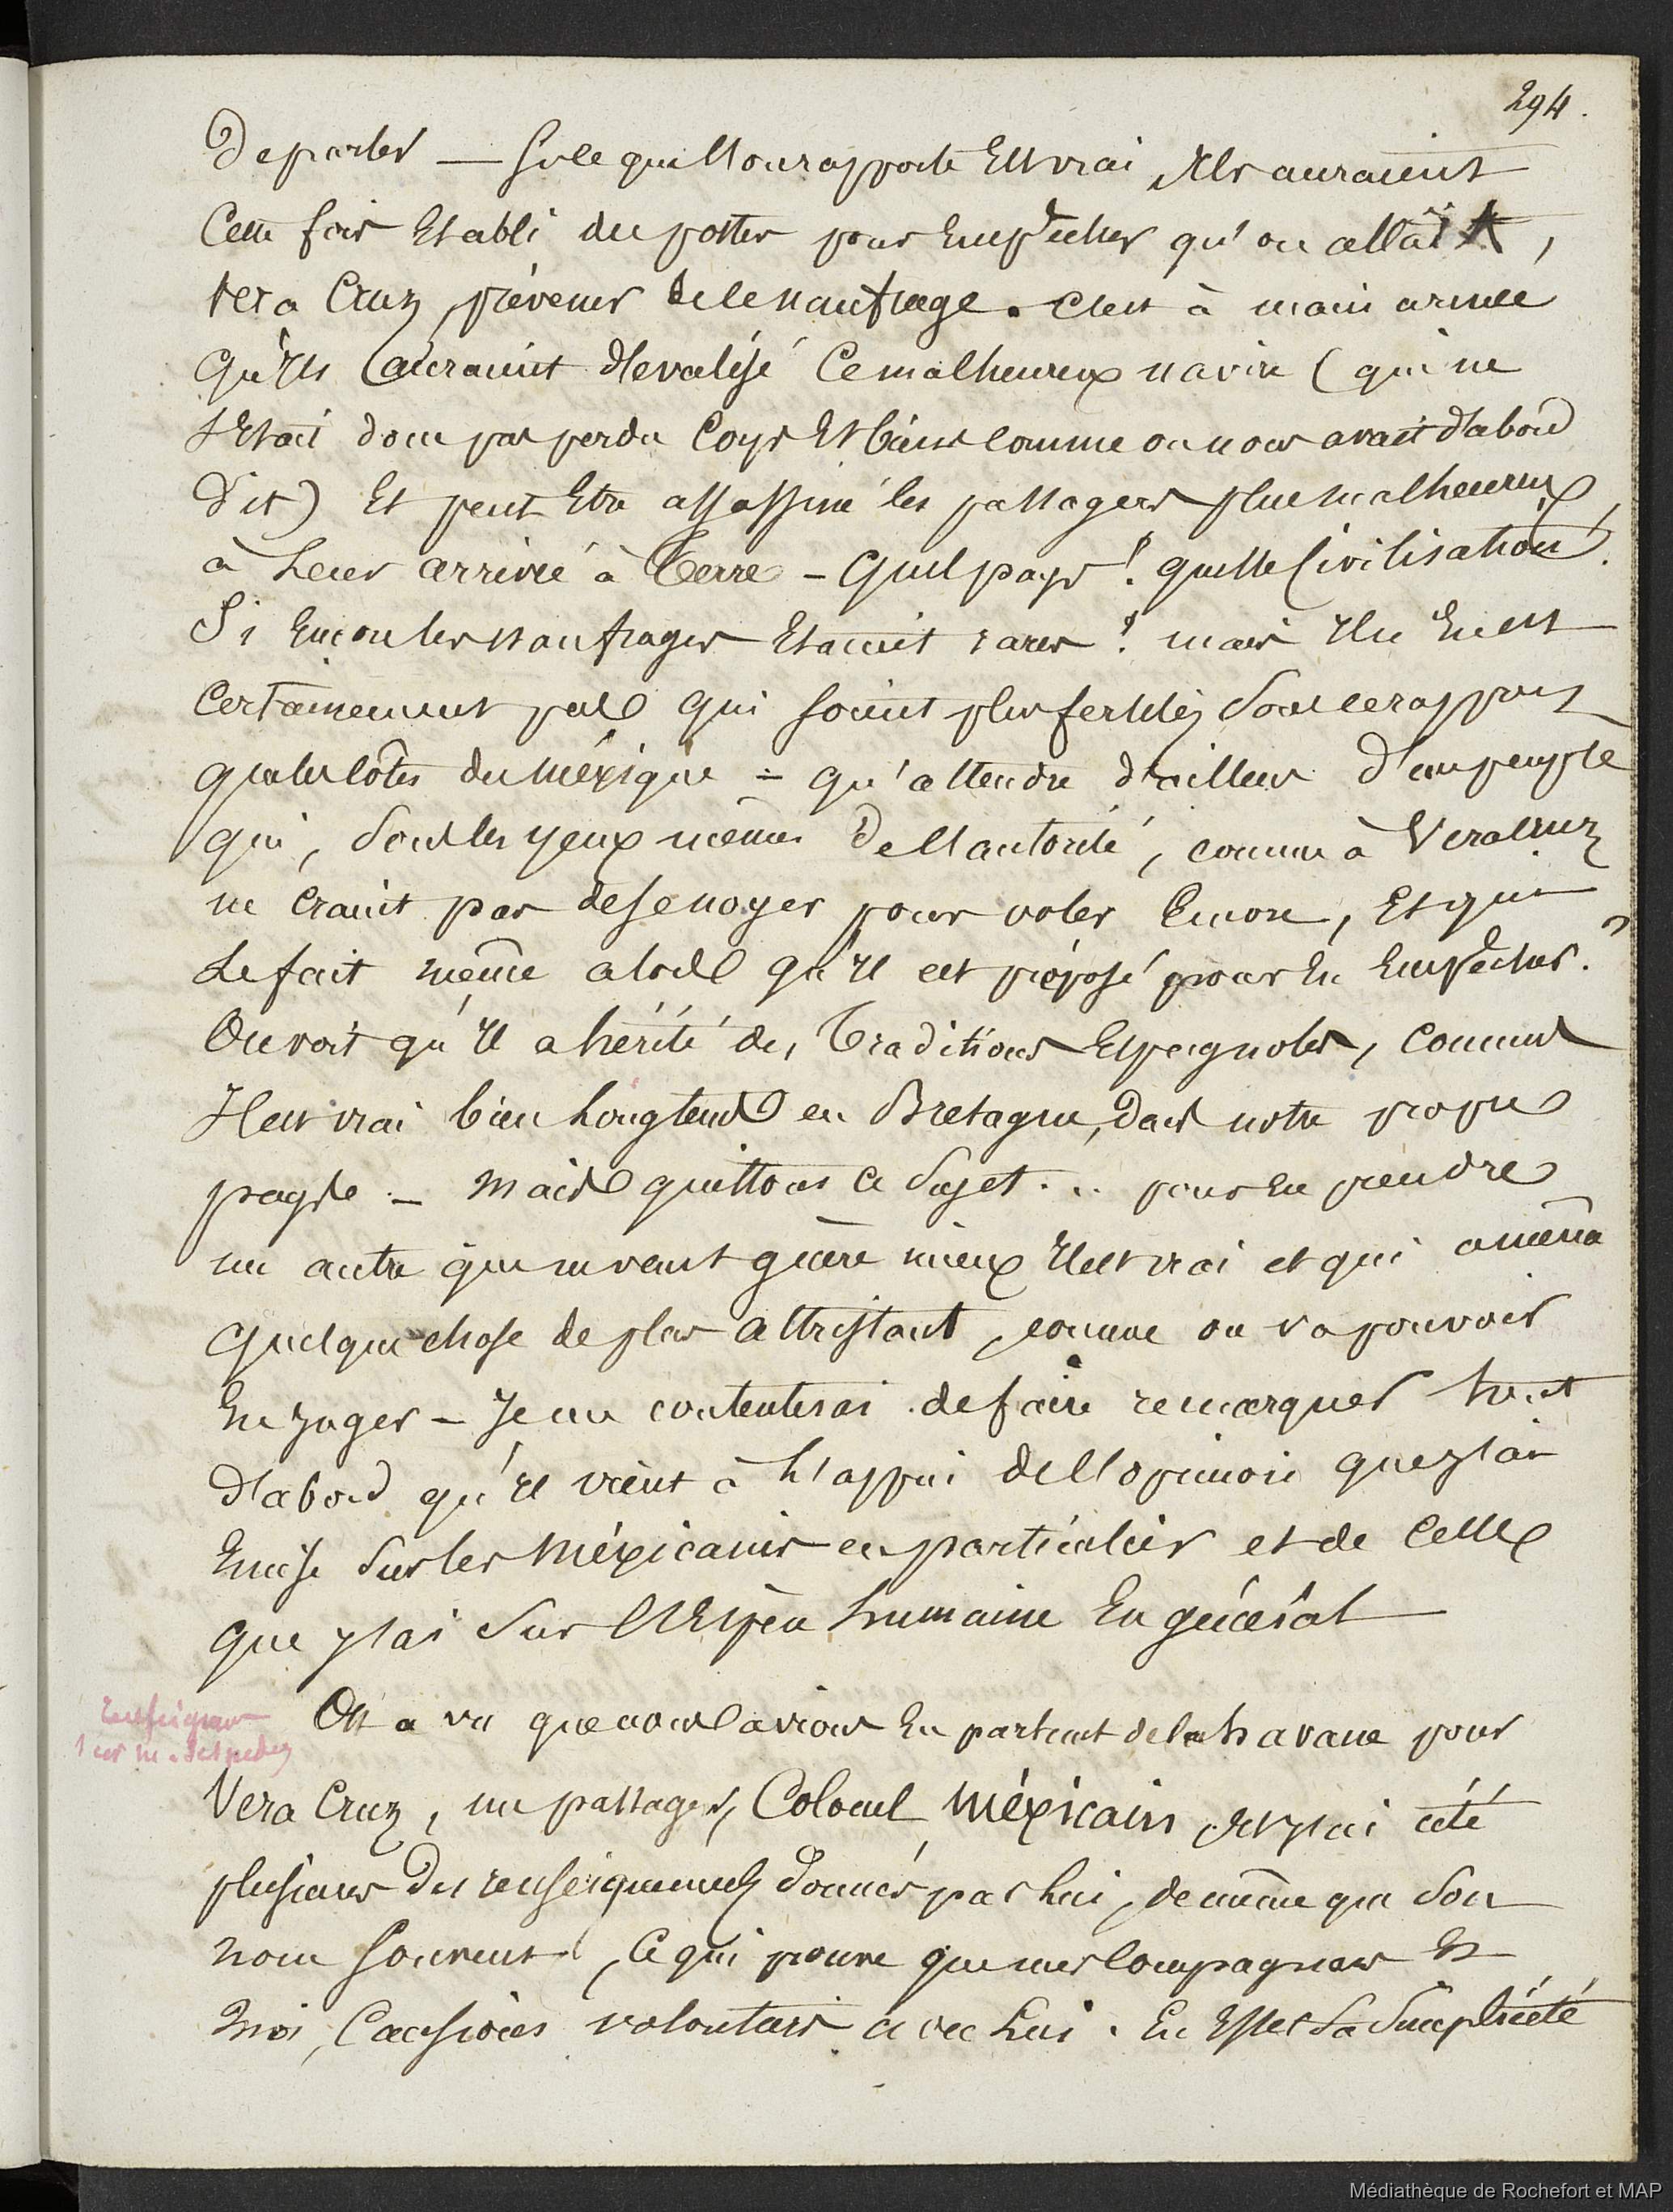 294.
de parler — Si ce qu'il nous rapporte est vrai, Ils auraient
Cette fois Etabli des postes pour Empêcher qu'on allât,
Vera Cruz, prévenir de ce naufrage. C'est à main armée
qu'Ils auraient dévalisé Ce malheureux navire (qui ne
s'Etait donc pas perdu Corps Et biens comme on nous avait d'abord
dit) Et peut Etre assassiné les passagers plus malheureux,
à Leur arrivée à Terre - Quel pays! quelle Civilisation!
Si Encore les naufrages Etaient rares! mais Il n'En est
Certainement pas qui soient plus fertiles Sous ce rapport
que les côtes du Méxique - qu'attendre d'ailleurs d'un peuple
qui, Sous les yeux mêmes de l'autorité, comme à Vera Cruz
ne craint pas de se noyer pour voler Encore, Et qui
Le fait même alors qu'Il est préposé pour En Empêcher?
On voit qu'Il a hérité des Traditions Espagnoles, comme
Il est vrai bien Longtems en Bretagne, dans notre propre
pays - Mais quittons ce Sujet... pour En prendre
un autre qui ne vaut guère mieux Il est vrai et qui amena
quelque chose de plus attristant, comme on va pouvoir
En Juger - Je me contenterai de faire remarquer tout
d'abord qu'Il vient à L'appui de l'opinion que J'ai
Emise Sur les Méxicains en particulier et de Celle
que J'ai Sur l'Espèce humaine En général
Renseignem
Sur M.
On a vu que nous avions En partant de la havane pour
Vera Cruz, un passager, Colonel Méxicain, Et J'ai cité
plusieurs des renseignements donnés par Lui, de même que Son
nom Souvent, Ce qui prouve que mes Compagnons Et
moi, Causions volontiers avec Lui. En Effet Sa Simplicité
Médiathèque de Rochefort et MAP